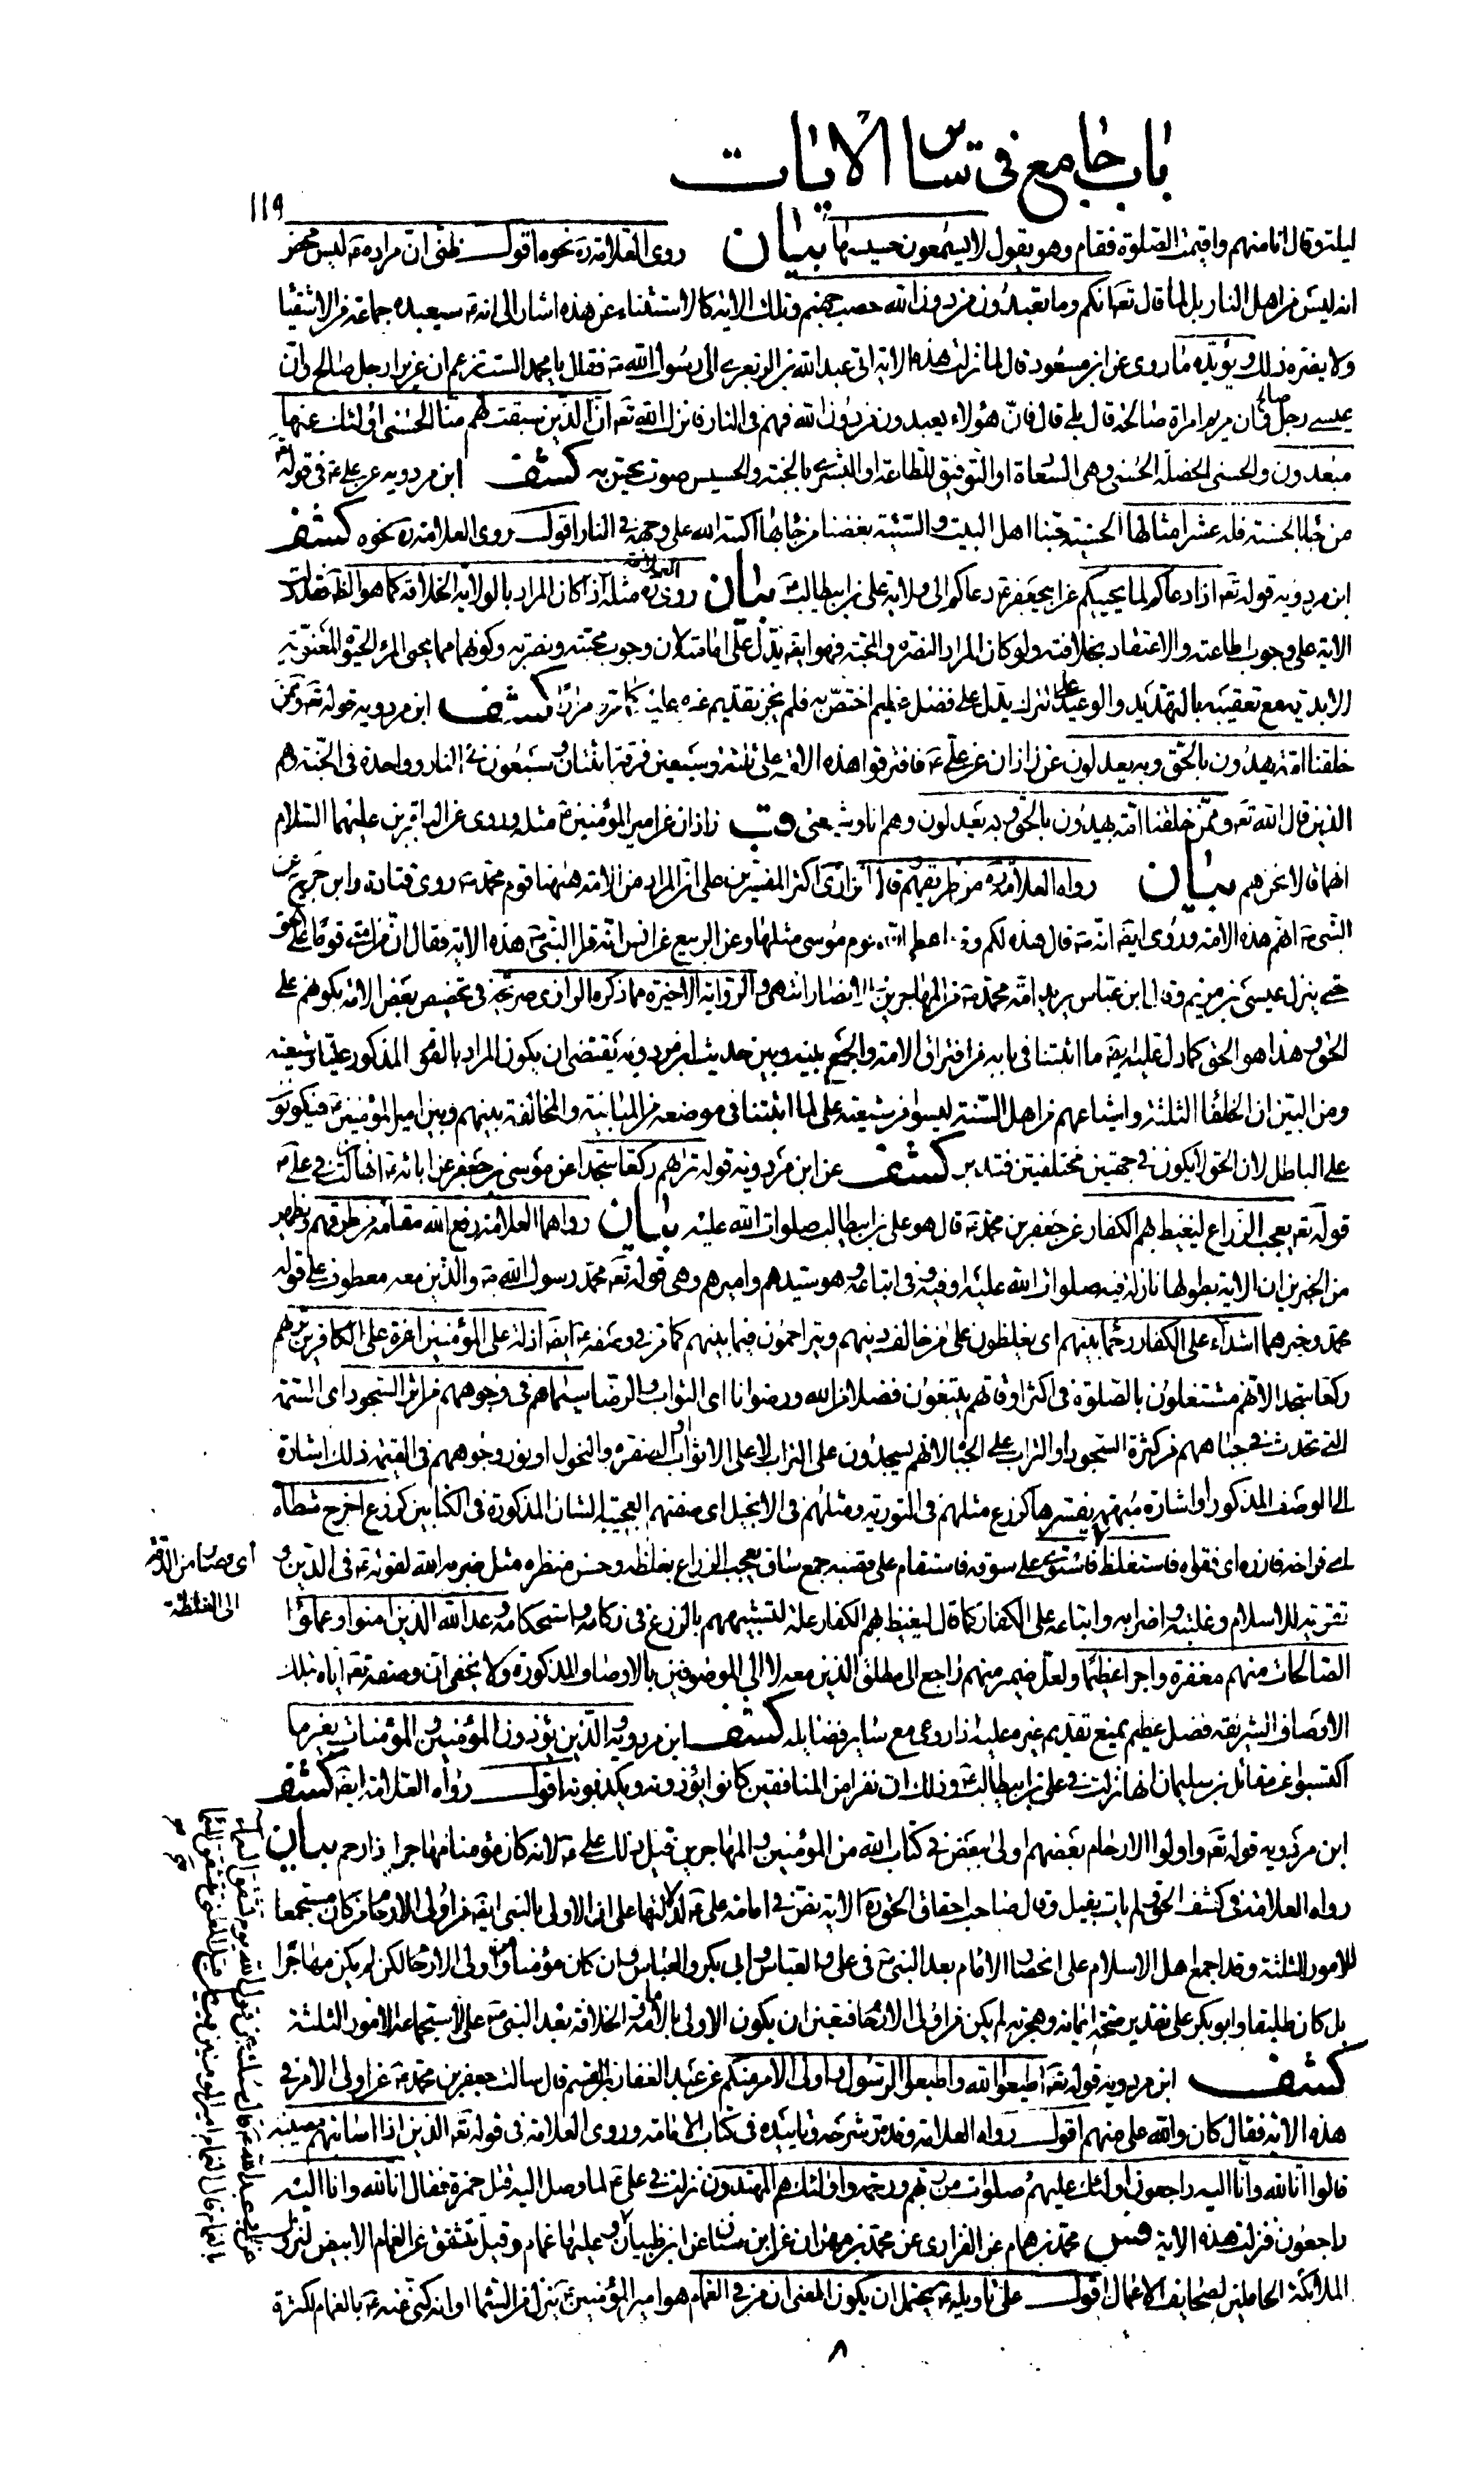 باب جامع في سائر الايات
١١٩
ليلة وقال انا منهم واقيمت الصلوة فقام وهو يقول لا يسمعون حسيسها بيان روى العلامة ره نحوه اقول ظني ان مراده عه ليس محض
انه ليس من اهل النار بل لما قال تعه انكم وما تعبدون من دون الله حصب جهنم وتلك الاية كالاستثناء عن هذه اشار الى انه عه سيعبده جماعة من الاشقياء
ولا يضره ذلك ويؤيده ما روى عن ابن مسعود قال لما نزلت هذه الاية اتى عبد الله بن الزبعرى الى رسول الله ص فقال يا محمد الست تزعم ان عزيرا رجل صالح وان
عيسى رجل صالح وان مريم امراة صالحة قال بلى قال فان هؤلاء يعبدون من دون الله فهم في النار فانزل الله تعه ان الذين سبقت لهم منا الحسنى اولئك عنها
مبعدون والحسنى الخصلة الحسنى وهى السعادة او التوفيق للطاعة او البشرى بالجنة والحسيس صوت يحس به كشف ابن مردويه عن علي عه في قوله تعه
من جاء بالحسنة فله عشر امثالها الحسنة حبنا اهل البيت والسيئة بغضنا من جاء بها اكبه الله على وجهه في النار اقول روى العلامة ره نحوه كشف
ابن مردويه قوله تعه اذا دعاكم لما يحييكم عن ابي جعفر عه دعاكم الى ولاية علي بن ابيطالب عه بيان روى العلامة ره مثله اذا كان المراد بالولاية الخلافة كما هو الظاهر فقد دلت
الاية على وجوب طاعته والاعتقاد بخلافته ولو كان المراد النصرة والمحبة فهو ايضه يدل على امامته لان وجوب محبته ونصرته وكونهما مما يحيى المرء الحيوة المعنوية
الابدية مع تعقيبه بالتهديد والوعيد على تركه يدل على فضل عظيم اختص به فلم يجز تقديم غيره عليه كما مر مرارا كشف ابن مردويه قوله تعه وممن
خلقنا امة يهدون بالحق وبه يعدلون عن زاذان عن علي عه فافترقوا هذه الامة على ثلثة وسبعين فرقة اثنتان وسبعون في النار وواحدة في الجنة وهم
الذين قال الله تعه وممن خلقنا امة يهدون بالحق وبه يعدلون وهم انا وشيعتى وقب زاذان عن امير المؤمنين عه مثله وروى عن الباقرين عليهما السلام
انهما قالا نحن هم بيان رواه العلامة ره من طريقهم قال الرازى اكثر المفسرين على ان المراد من الامة ههنا قوم محمد ص روى قتادة وابن جريج عن
النبي ص انهم هذه الامة وروى ايضه انه ص قال هذه لكم وقد اعطى الله قوم موسى مثلها وعن الربيع عن انس انه قرا النبي ص هذه الاية فقال ان من امتى قوما على الحق
حتى ينزل عيسى بن مريم وقال ابن عباس يريد امة محمد ص من المهاجرين والانصار انتهى والرواية الاخيرة مما ذكره الرازى صريحة في تخصيص بعض الامة بكونهم على
الحق وهذا هو الحق كما دل عليه بقية ما اثبتنا في بابه من افتراق الامة والجمع بينه وبين حديث ابن مردويه يقتضى ان يكون المراد بالقوم المذكور عليا وشيعته
ومن البين ان الخلفاء الثلثة واشياعهم من اهل السنة ليسوا من شيعته على لما اثبتنا في موضعه من المباينة والمخالفة بينهم وبين امير المؤمنين عه فيكونون
على الباطل لان الحق لا يكون في جهتين مختلفتين فتدبر كشف عن ابن مردويه قوله تراهم ركعا سجدا عن موسى بن جعفر عن ابائه عه انها نزلت في علي عه
قوله تعه يعجب الزراع ليغيظ بهم الكفار عن جعفر بن محمد عه قال هو علي بن ابيطالب صلوات الله عليه بيان رواهما العلامة رفع الله مقامه من طرقهم ويظهر
من الخبرين ان الاية بطولها نازلة فيه صلوات الله عليه او فيه وفى اتباعه وهو سيدهم واميرهم وهى قوله تعه محمد رسول الله ص والذين معه معطوف على قوله
محمد وخبرهما اشداء على الكفار رحماء بينهم اى يغلظون على من خالف دينهم ويتراحمون فيما بينهم كما مر في وصفه عه ايضه اذلة على المؤمنين اعزة على الكافرين تراهم
ركعا سجدا لانهم مشتغلون بالصلوة في اكثر اوقاتهم يبتغون فضلا من الله ورضوانا اى الثواب والرضا سيماهم في وجوههم من اثر السجود اى السمة
التى تحدث في جباههم من كثرة السجود او التراب على الجباه لانهم يسجدون على التراب لا على الاثواب او الصفرة والنحول او نور وجوههم في القيمة ذلك اشارة
الى الوصف المذكور او اشارة مبهمة يفسرها كزرع مثلهم في التورية ومثلهم في الانجيل اى صفتهم العجيبة الشان المذكورة في الكتابين كزرع اخرج شطاه
اى فراخه فازره اى فقواه فاستغلظ فاستوى على سوقه فاستقام على قصبه جمع ساق يعجب الزراع بغلظه وحسن منظره مثل ضربه الله لقوته عه في الدين و
اى صار من الدقة
الى الغلظة
تقويته للاسلام وغلبته واضرابه واتباعه على الكفار كما قال ليغيظ بهم الكفار علة لتشبيههم بالزرع في زكائه واستحكامه وعد الله الذين امنوا وعملوا
الصالحات منهم مغفرة واجرا عظيما ولعل ضمير منهم راجع الى مطلق الذين معه لا الى الموصوفين بالاوصاف المذكورة ولا يخفى ان وصفه تعه اياه بتلك
الاوصاف الشريفة فضل عظيم يمنع تقديم غيره عليه اذا روعى مع سائر فضايله كشف ابن مردويه الذين يؤذون المؤمنين والمؤمنات بغير ما
اكتسبوا عن مقاتل بن سليمان انها نزلت في علي بن ابيطالب عه وذلك ان نفرا من المنافقين كانوا يؤذونه ويكذبونه اقول رواه العلامة ايضه كشف
ابن مردويه قوله تعه واولوا الارحام بعضهم اولى ببعض في كتاب الله من المؤمنين والمهاجرين قيل ذلك علي عه لانه كان مؤمنا مهاجرا ذا رحم بيان
رواه العلامة في كشف الحق ولم يات بقيل وقال صاحب احقاق الحق ره الاية نص في امامة علي عه لدلالتها على ان الاولى بالنبي ايضه من اولى الارحام من كان مستجمعا
للامور الثلثة وقد اجمع اهل الاسلام على انحصار الامام بعد النبي ص في علي والعباس وابي بكر والعباس وان كان مؤمنا ومن اولى الارحام لكن لم يكن مهاجرا
بل كان طليقا وابو بكر على تقدير صحة ايمانه وهجرته لم يكن من اولى الارحام فتعين ان يكون الاولى بالامامة والخلافة بعد النبي ص علي لاستجماعه الامور الثلثة
كشف ابن مردويه قوله تعه اطيعوا الله واطيعوا الرسول واولى الامر منكم عن عبد الغفار بن القسم قال سالت جعفر بن محمد عه عن اولى الامر في
هذه الاية فقال كان والله علي منهم اقول رواه العلامة وقد مر شرحه وتاييده في كتاب الامامة وروى العلامة في قوله تعه الذين اذا اصابتهم مصيبة
قالوا انا لله وانا اليه راجعون اولئك عليهم صلوات من ربهم ورحمة واولئك هم المهتدون نزلت في علي عه لما وصل اليه قتل حمزة فقال انا لله وانا اليه
راجعون فنزلت هذه الاية فس محمد بن همام عن الفزارى عن محمد بن مهران عن ابن سنان عن ابن ظبيان وعليها غمام وقيل تشقق عن الغمام الابيض لنزول
الملائكة الحاملين لصحايف الاعمال اقول على تاويله عه يحتمل ان يكون المعنى ان من في الغمام هو امير المؤمنين عه ينزل من السماء او انه كنى عنه عه بالغمام لكثرة
٨
عن ابي عبد الله عه قال سالته عن قول الله يوم تشقق السماء
بالغمام قال الغمام امير المؤمنين